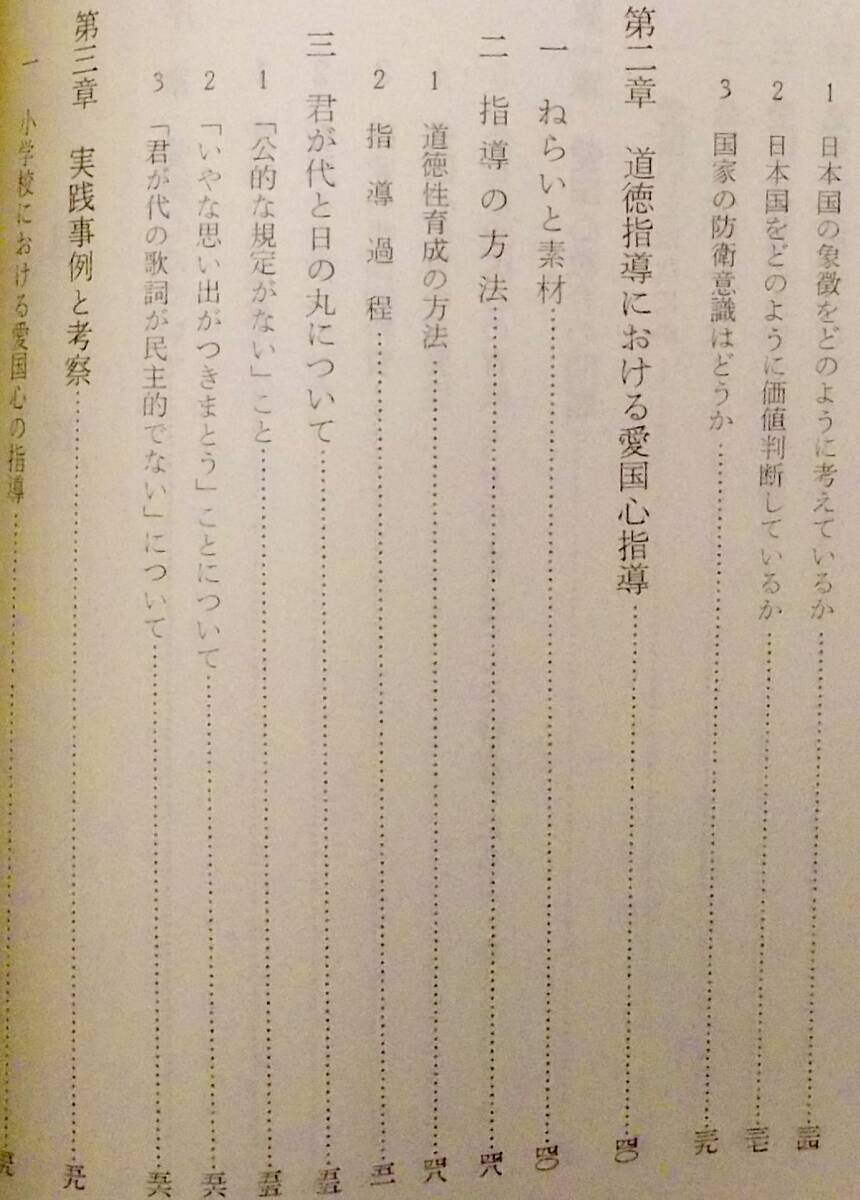 1 日本国の象徴をどのように考えているか……三四
2 日本国をどのように価値判断しているか……三七
3 国家の防衛意識はどうか……三九
第二章 道徳指導における愛国心指導……四〇
一 ねらいと素材……四〇
二 指導の方法……四八
1 道徳性育成の方法……四八
2 指導過程……五一
三 君が代と日の丸について……五五
1 「公的な規定がない」こと……五五
2 「いやな思い出がつきまとう」ことについて……五六
3 「君が代の歌詞が民主的でない」について……五六
第三章 実践事例と考察……五九
一 小学校における愛国心の指導……五九